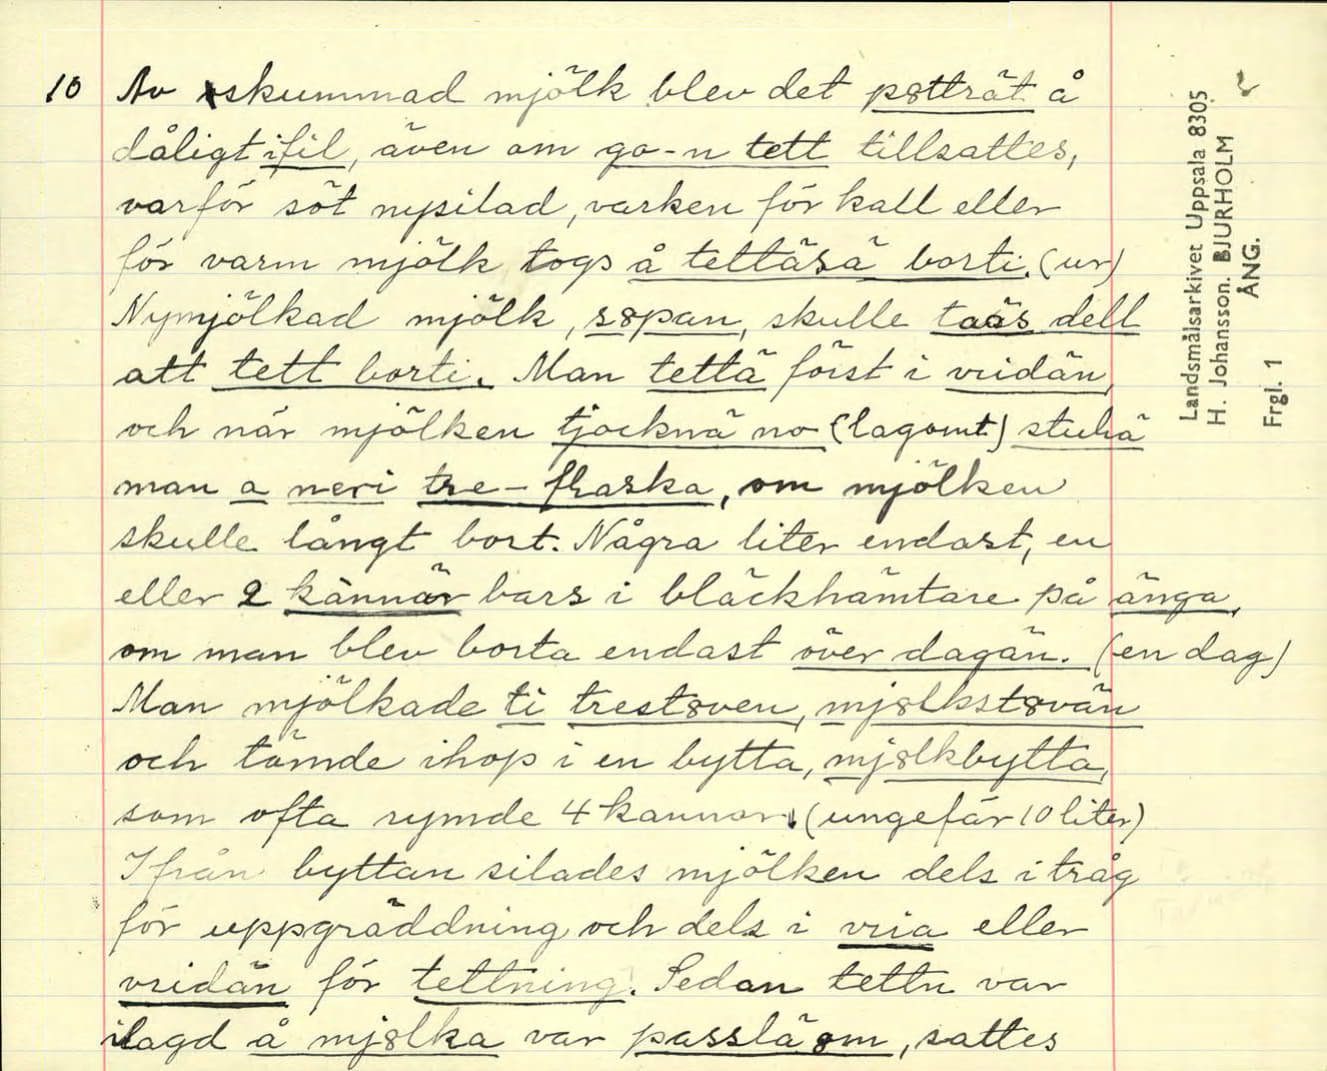 10 Av skummad mjölk blev det p8tträt å
dåligt ifil, även om go-n tett tillsattes,
varför söt nysilad, varken för kall eller
för varm mjölk togs å tettäsä borti. (ur)
Nymjölkad mjölk, s8pan, skulle taäs dell
att tett borti. Man tettä först i vridän,
och när mjölken tjocknä no (lagomt) stuhä
man a neri tre-flaska, om mjölken
skulle långt bort. Några liter endast, en
eller 2 kännär bars i bläckhämtare på änga,
om man blev borta endast över dagän. (en dag)
Man mjölkade ti trest8ven, mj8lkst8vän
och tömde ihop i en bytta, mj8lkbytta,
som ofta rymde 4 kannor. (ungefär 10 liter)
Ifrån byttan silades mjölken dels i tråg
för uppgräddning och dels i vria eller
vridän för tettning. Sedan tettn var
ilagd å mj8lka var passlä 8m, sattes
Landsmålsarkivet Uppsala 8305
H. Johansson. BJURHOLM
ÅNG.
Frgl. 1